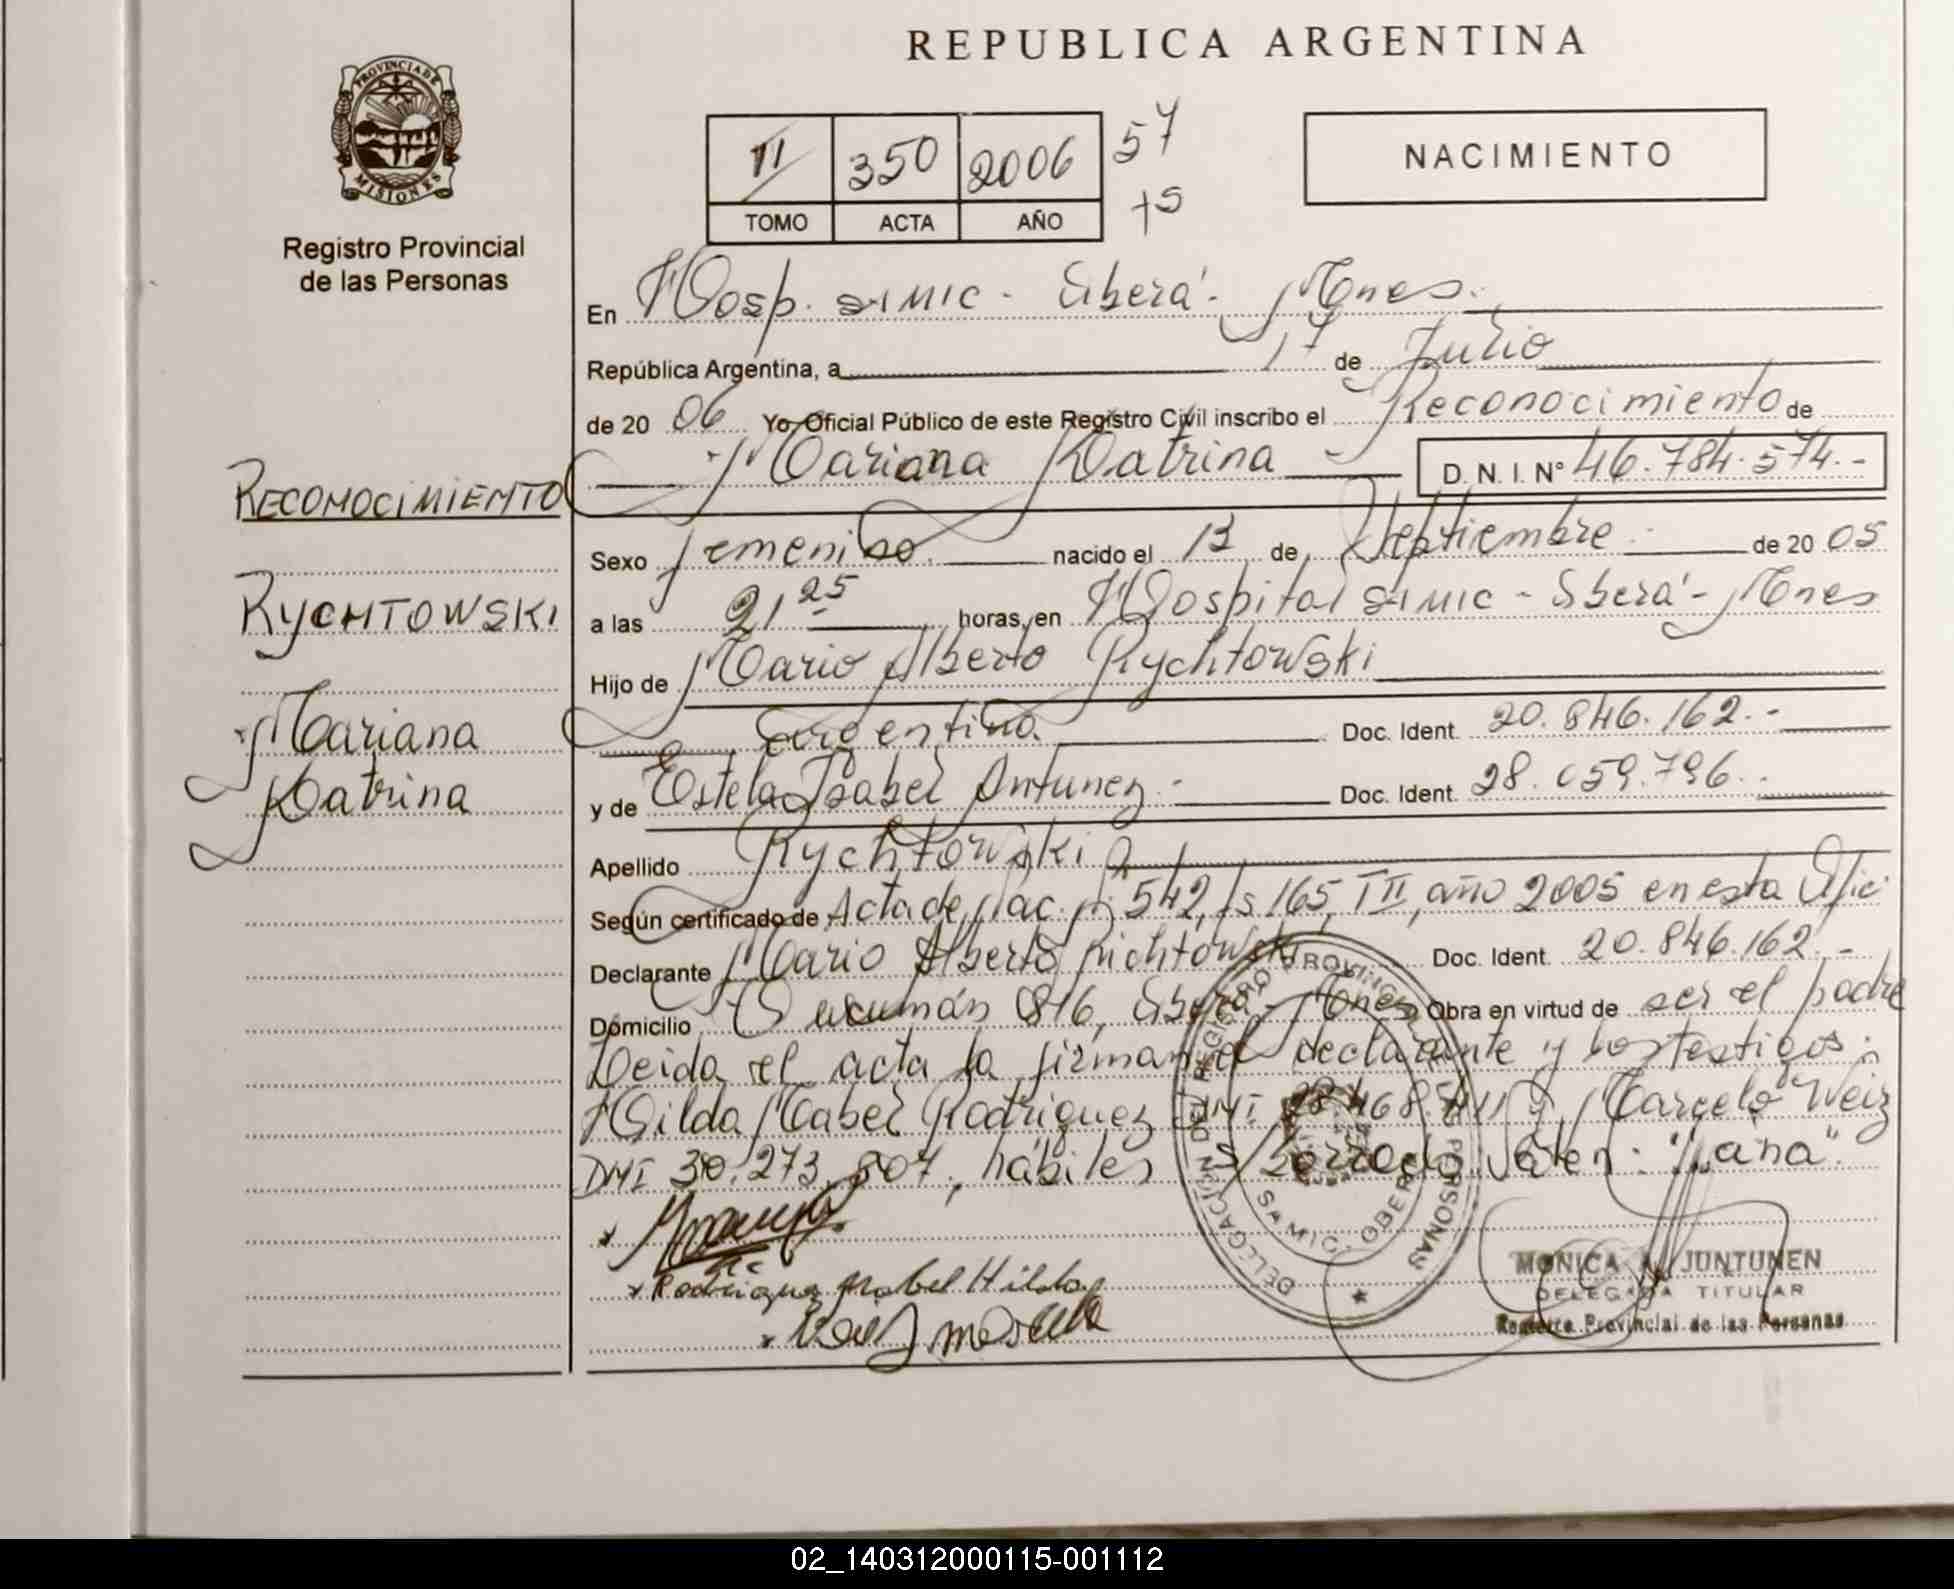 REPUBLICA ARGENTINA
PROVINCIA DE
MISIONES
Registro Provincial
de las Personas
II 350 2006 57
TOMO ACTA AÑO
NACIMIENTO
En Hosp. SAMIC - Oberá - Mnes.
República Argentina, a 17 de Julio
de 2006 Yo Oficial Público de este Registro Civil inscribo el Reconocimiento de
Mariana Katrina D. N. I. Nº 46.784.574.-
RECONOCIMIENTO
Sexo femenino. nacido el 13 de Septiembre de 2005
RYCHTOWSKI
a las 21 25 horas, en Hospital SAMIC - Oberá - Mnes
Hijo de Mario Alberto Rychtowski
Argentino Doc. Ident. 20.846.162.-
Mariana
Katrina
y de Estela Isabel Antunez.- Doc. Ident. 28.059.796.
Apellido Rychtowski
Según certificado de Acta de Nac. Nº 542, fs 165, T III, año 2005 en esta Ofic.
Declarante Mario Alberto Richtowski Doc. Ident. 20.846.162.-
Domicilio Tucumán 816, Oberá - Mnes Obra en virtud de ser el padre
Leida el acta la firman el declarante y los testigos:
Hilda Mabel Rodriguez DNI y Marcelo Weiz
DNI 30.273.807, hábiles s/borrado Valen: "ana".
DELEGACIÓN DEL REGISTRO PROVINCIAL PERSONAS
SAMIC - OBERÁ
Rodriguez Mabel Hilda
MONICA A. JUNTUNEN
DELEGADA TITULAR
Registro Provincial de las Personas
02_140312000115-001112